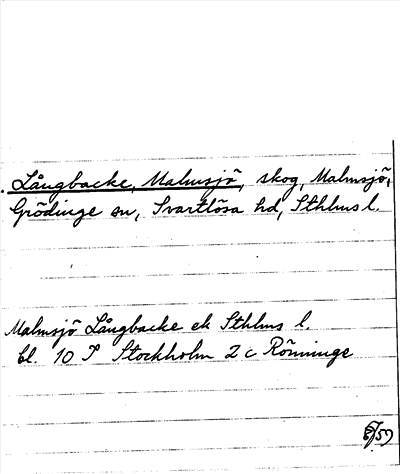 Långbacke, Malmsjö, skog, Malmsjö,
Grödinge sn, Svartlösa hd, Sthlms l.
Malmsjö Långbacke ek Sthlms l.
bl. 10 I Stockholm 2 c Rönninge
/57